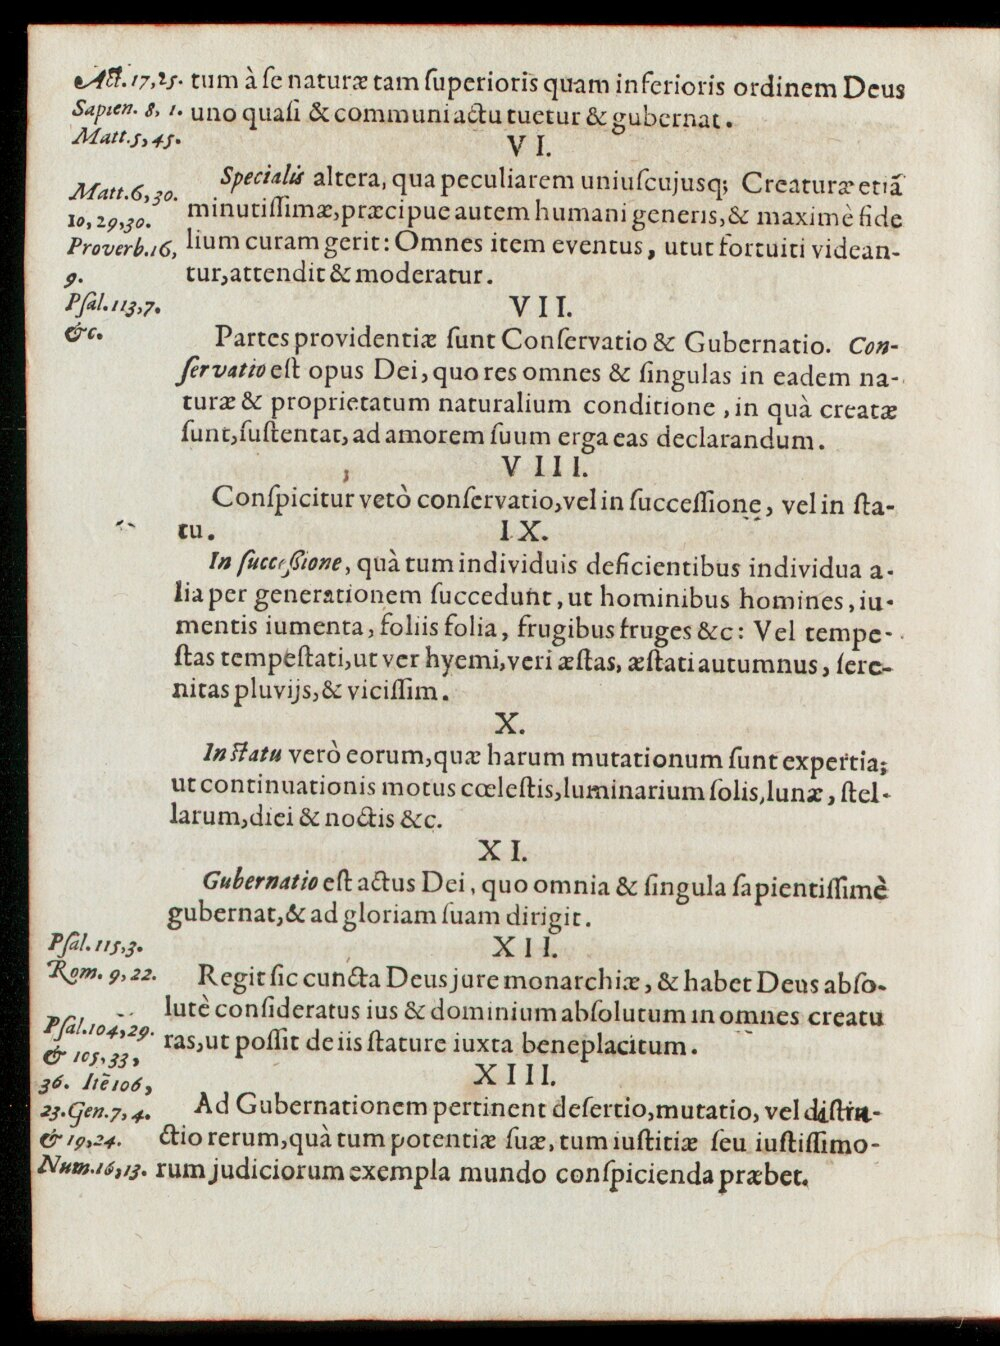 Act. 17,25. tum à ſe naturæ tam ſuperioris quam inferioris ordinem Deus
Sapien. 8, 1. uno quaſi & communi actu tuetur & gubernat.
Matt. 5, 45.
VI.
Matt. 6, 30. Specialis altera, qua peculiarem uniuſcujusq; Creaturæ etiā
10, 29, 30. minutiſſimæ, præcipue autem humani generis, & maximè fide
Proverb. 16, lium curam gerit: Omnes item eventus, utut fortuiti videan-
9. tur, attendit & moderatur.
Pſal. 113, 7.
VII.
&c. Partes providentiæ ſunt Conſervatio & Gubernatio. Con-
ſervatio eſt opus Dei, quo res omnes & ſingulas in eadem na-
turæ & proprietatum naturalium conditione, in quà creatæ
ſunt, ſuſtentat, ad amorem ſuum erga eas declarandum.
VIII.
Conſpicitur vetò conſervatio, vel in ſucceſſione, vel in ſta-
tu.
IX.
In ſucceſſione, quà tum individuis deficientibus individua a-
lia per generationem ſuccedunt, ut hominibus homines, iu-
mentis iumenta, foliis folia, frugibus fruges &c: Vel tempe-
ſtas tempeſtati, ut ver hyemi, veri æſtas, æſtati autumnus, ſere-
nitas pluvijs, & viciſſim.
X.
In ſtatu verò eorum, quæ harum mutationum ſunt expertia;
ut continuationis motus cœleſtis, luminarium ſolis, lunæ, ſtel-
larum, diei & noctis &c.
XI.
Gubernatio eſt actus Dei, quo omnia & ſingula ſapientiſſimè
gubernat, & ad gloriam ſuam dirigit.
Pſal. 115, 3.
XII.
Rom. 9, 22. Regit ſic cuncta Deus jure monarchiæ, & habet Deus abſo-
lutè conſideratus ius & dominium abſolutum in omnes creatu
Pſal. 104, 29. ras, ut poſſit de iis ſtature iuxta beneplacitum.
& 105, 33,
XIII.
36. Itē 106,
23. Gen. 7, 4. Ad Gubernationem pertinent deſertio, mutatio, vel diſtru-
& 19, 24. ctio rerum, quà tum potentiæ ſuæ, tum iuſtitiæ ſeu iuſtiſſimo-
Num. 16, 13. rum judiciorum exempla mundo conſpicienda præbet.